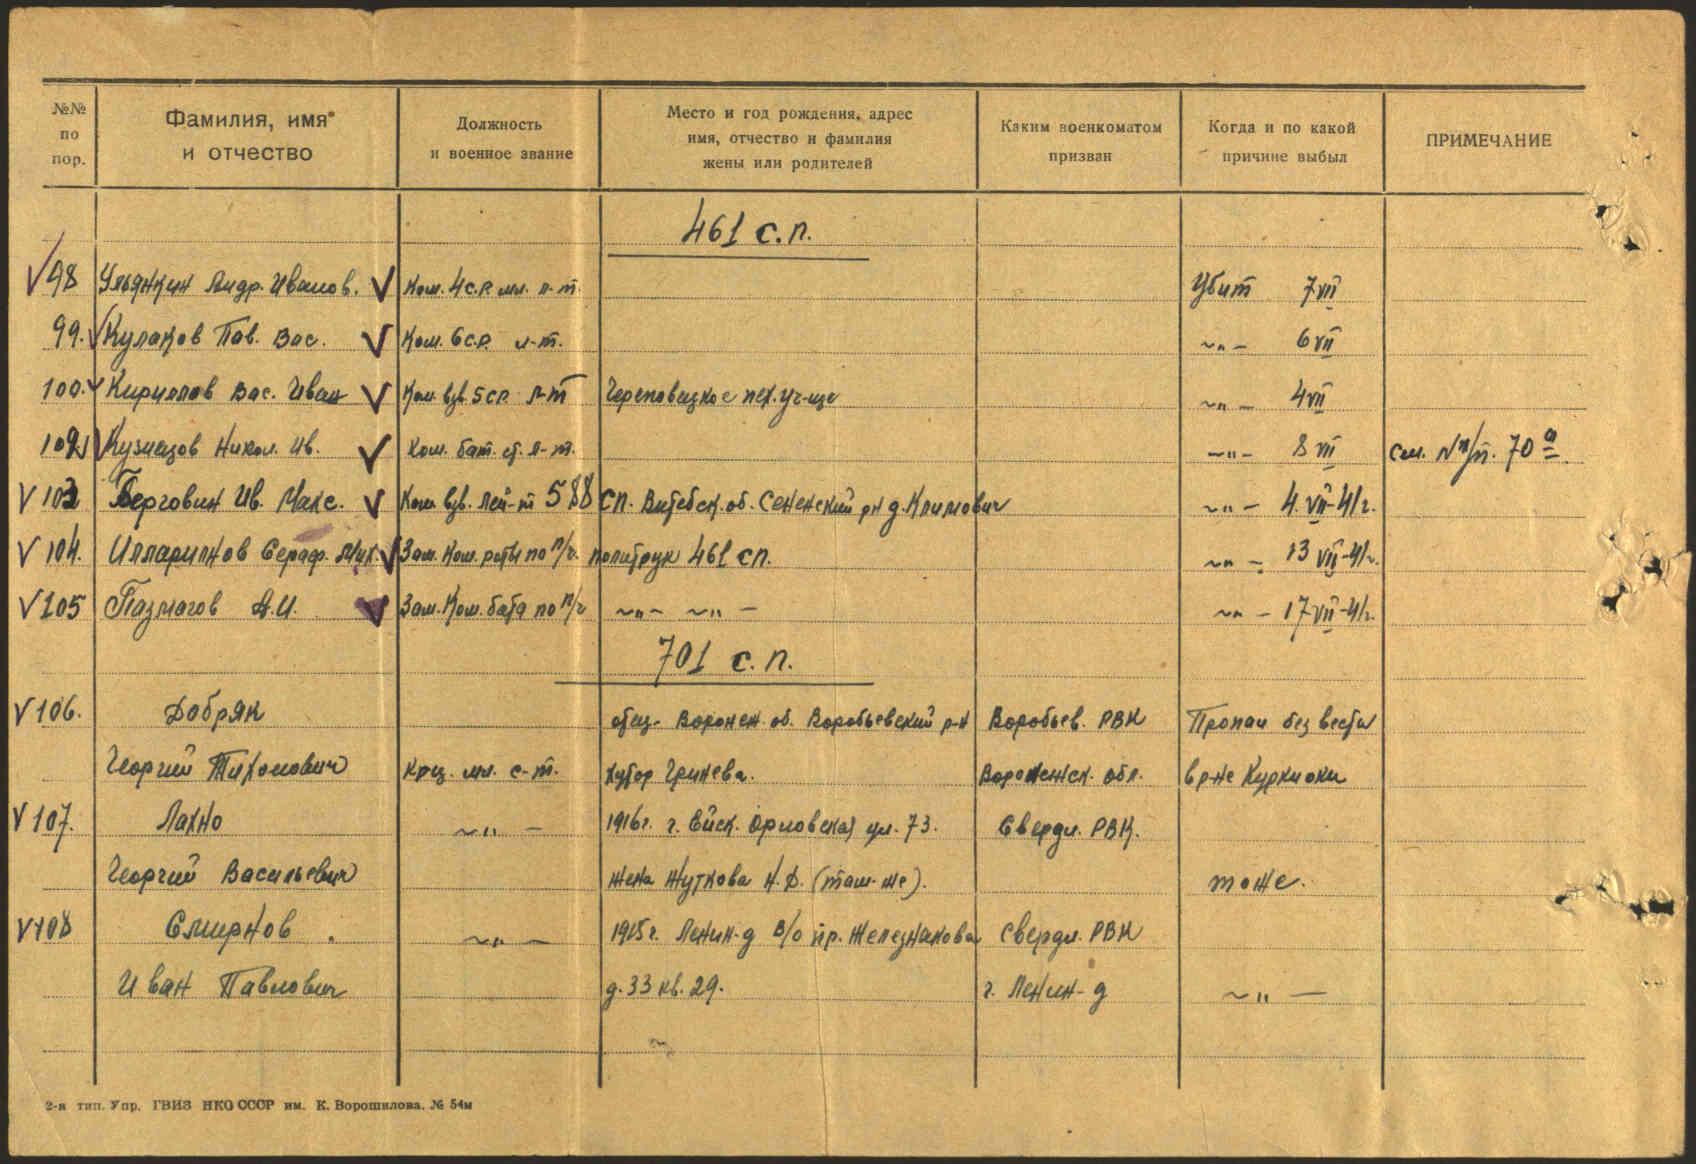 №№ по пор.
Фамилия, имя и отчество
Должность и военное звание
Место и год рождения, адрес имя, отчество и фамилия жены или родителей
Каким военкоматом призван
Когда и по какой причине выбыл
ПРИМЕЧАНИЕ
461 с.п.
98 Ульянкин Андр. Иванов. Ком. 4 с.р. мл. л-т. Убит 7 VII
99. Кулаков Пав. Вас. Ком. 6 с.р. л-т. -"- 6 VII
100. Кириллов Вас. Иван Ком. взв. 5 с.р. л-т Череповецкое пех. уч-ще -"- 4 VII
Никол. Ив. Ком. бат. ст. л-т. -"- 8 VII См. № п/п. 70 а
103 Ив. Макс. Ком. взв. лей-т 588 сп. Витебск. об. Сененский рн д. Климович -"- 4. VII-41 г.
104. Илларионов Сераф. Мих. Зам. Ком. роты по п/ч. политрук 461 сп. -"- 13 VII-41 г.
105 А.И. Зам. Ком. бата по п/ч -"- -"- -"- 17 VII-41 г.
701 с.п.
106. Добряк отец- Воронеж. об. Воробьевский р-н Воробьев. РВК Пропал без вести
Георгий Тихонович мл. с-т. хутор Гринева. Воронежск. обл. в р-не Куркиоки
107. Лахно -"- 1916 г. г. Ейск. Орловская ул. 73. Свердл. РВК.
Георгий Васильевич жена Жуткова Н.Д. (там-же). тоже.
108 Смирнов -"- 1915 г. Ленин-д В/о пр. Железнякова Свердл. РВК
Иван Павлович д. 33 кв. 29. г. Ленин-д -"-
2-я тип. Упр. ГВИЗ НКО СССР им. К. Ворошилова. № 54м